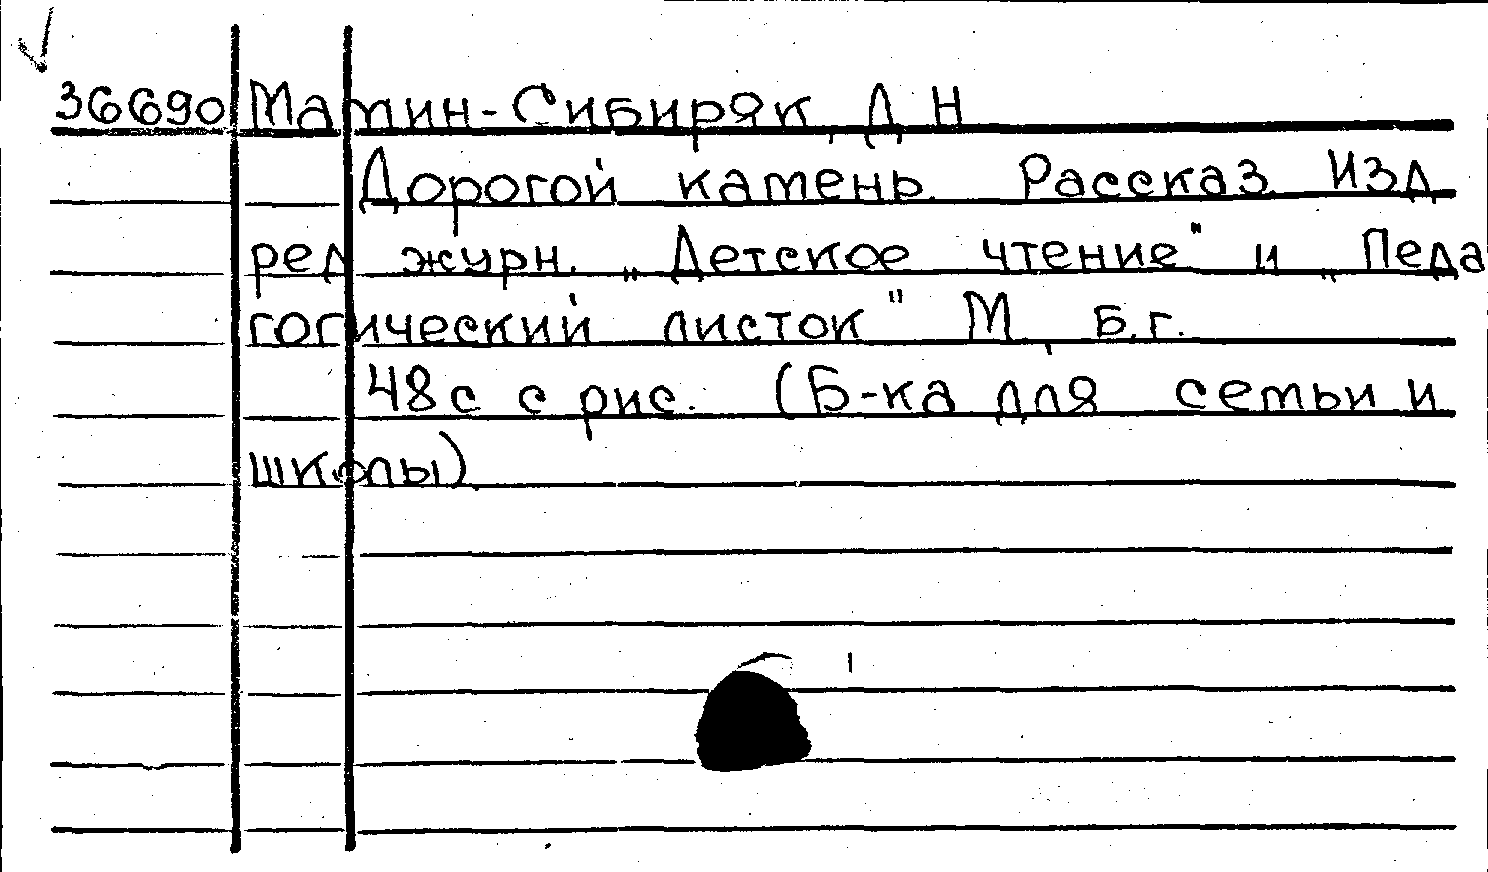 36690 Мамин-Сибиряк, Д Н
Дорогой камень. Рассказ. Изд
ред журн. „Детское чтение" и „Педа
гогический листок" М, б.г.
48с с рис. (Б-ка для семьи и
школы).